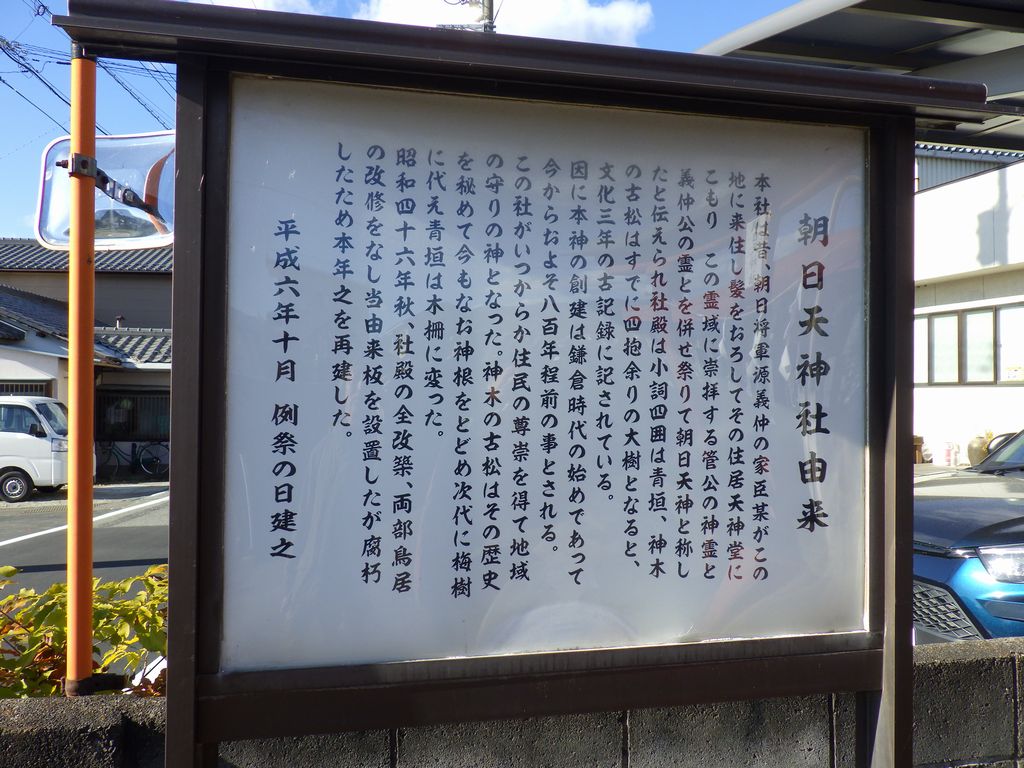 朝日天神社由来
本社は昔、朝日将軍源義仲の家臣某がこの
地に来住し髪をおろしてその住居天神堂に
こもり この霊域に崇拝する管公の神霊と
義仲公の霊とを併せ祭りて朝日天神と称し
たと伝えられ社殿は小詞四囲は青垣、神木
の古松はすでに四抱余りの大樹となると、
文化三年の古記録に記されている。
因に本神の創建は鎌倉時代の始めであって
今からおよそ八百年程前の事とされる。
この社がいつからか住民の尊崇を得て地域
の守りの神となった。神木の古松はその歴史
を秘めて今もなお神根をとどめ次代に梅樹
に代え青垣は木柵に変った。
昭和四十六年秋、社殿の全改築、両部鳥居
の改修をなし当由来板を設置したが腐朽
したため本年之を再建した。
平成六年十月 例祭の日建之